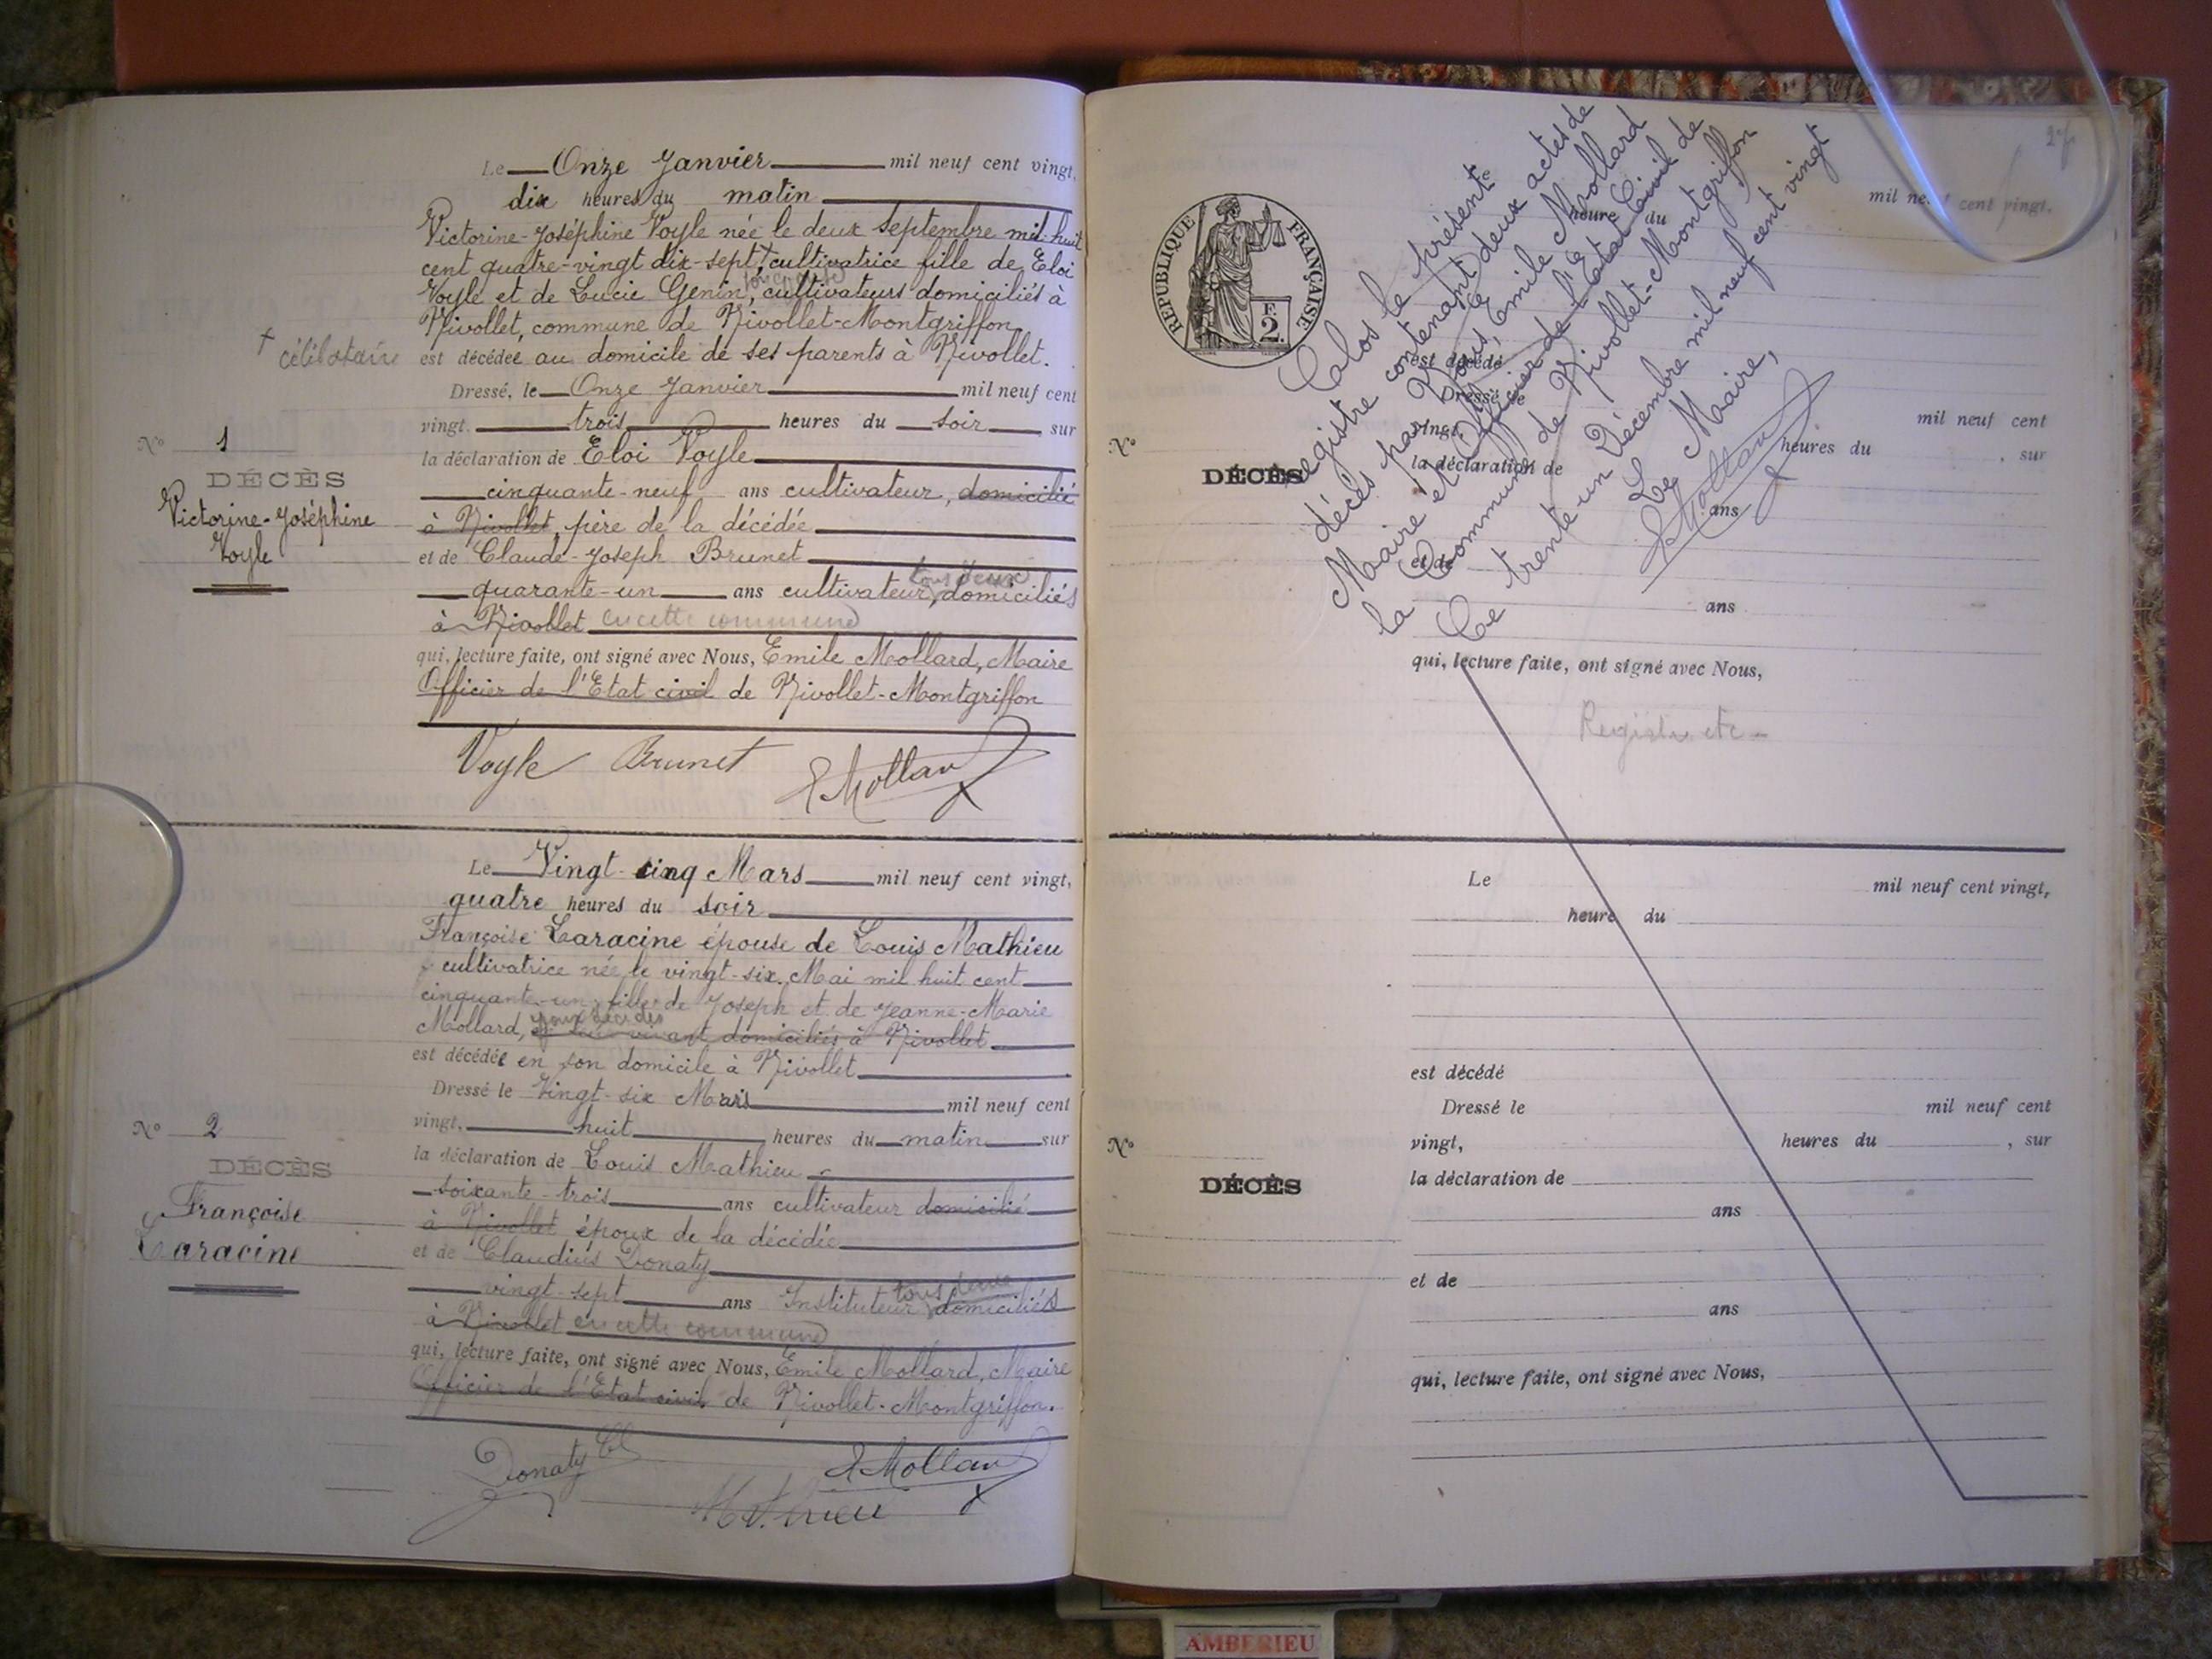 Le Onze Janvier mil neuf cent vingt,
dix heures du matin
Victorine-Joséphine Voyle née le deux Septembre mil huit
cent quatre-vingt dix-sept + cultivatrice fille de Eloi
Voyle et de Lucie Genin, cultivateurs domiciliés à
Nivollet, commune de Nivollet-Montgriffon
+ célibataire
est décédée au domicile de ses parents à Nivollet.
Dressé, le Onze Janvier mil neuf cent
vingt. trois heures du soir, sur
la déclaration de Eloi Voyle
cinquante-neuf ans cultivateur, domicilié
à Nivollet père de la décédée
et de Claude-Joseph Brunet
tous deux
quarante-un ans cultivateur, domiciliés
à Nivollet en cette commune
qui, lecture faite, ont signé avec Nous, Emile Mollard, Maire
Officier de l'Etat civil de Nivollet-Montgriffon
Voyle Brunet E Mollard
N° 1
DÉCÈS
Victorine-Joséphine
Voyle
Le Vingt-cinq Mars mil neuf cent vingt,
quatre heures du soir
Françoise Laracine épouse de Louis Mathieu
cultivatrice née le vingt-six Mai mil huit cent
cinquante-un fille de Joseph et de Jeanne-Marie
Mollard, vivant domiciliés à Nivollet
est décédée en son domicile à Nivollet
Dressé le Vingt-six Mars mil neuf cent
vingt, huit heures du matin sur
la déclaration de Louis Mathieu
soixante-trois ans cultivateur domicilié
à Nivollet époux de la décédée
et de Claudius Donaty
tous deux
vingt-sept ans Instituteur domiciliés
à Nivollet en cette commune
qui, lecture faite, ont signé avec Nous, Emile Mollard, Maire
Officier de l'Etat civil de Nivollet-Montgriffon.
Donaty Cl E Mollard
Mathieu
N° 2
DÉCÈS
Françoise
Laracine
RÉPUBLIQUE FRANÇAISE
F.
2.
mil neuf cent vingt,
heure du
Calos le présente
registre contenant deux actes de
décès par Nous, Emile Mollard
Maire et Officier de l'Etat Civil de
la Commune de Nivollet-Montgriffon
Ce trente-un Décembre mil neuf cent vingt
Le Maire,
E Mollard
est décédé
Dressé le mil neuf cent
vingt, heures du , sur
N°
DÉCÈS
la déclaration de
ans
et de
ans
qui, lecture faite, ont signé avec Nous,
Registre etc -
Le mil neuf cent vingt,
heure du
est décédé
Dressé le mil neuf cent
vingt, heures du , sur
N°
DÉCÈS
la déclaration de
ans
et de
ans
qui, lecture faite, ont signé avec Nous,
AMBERIEU